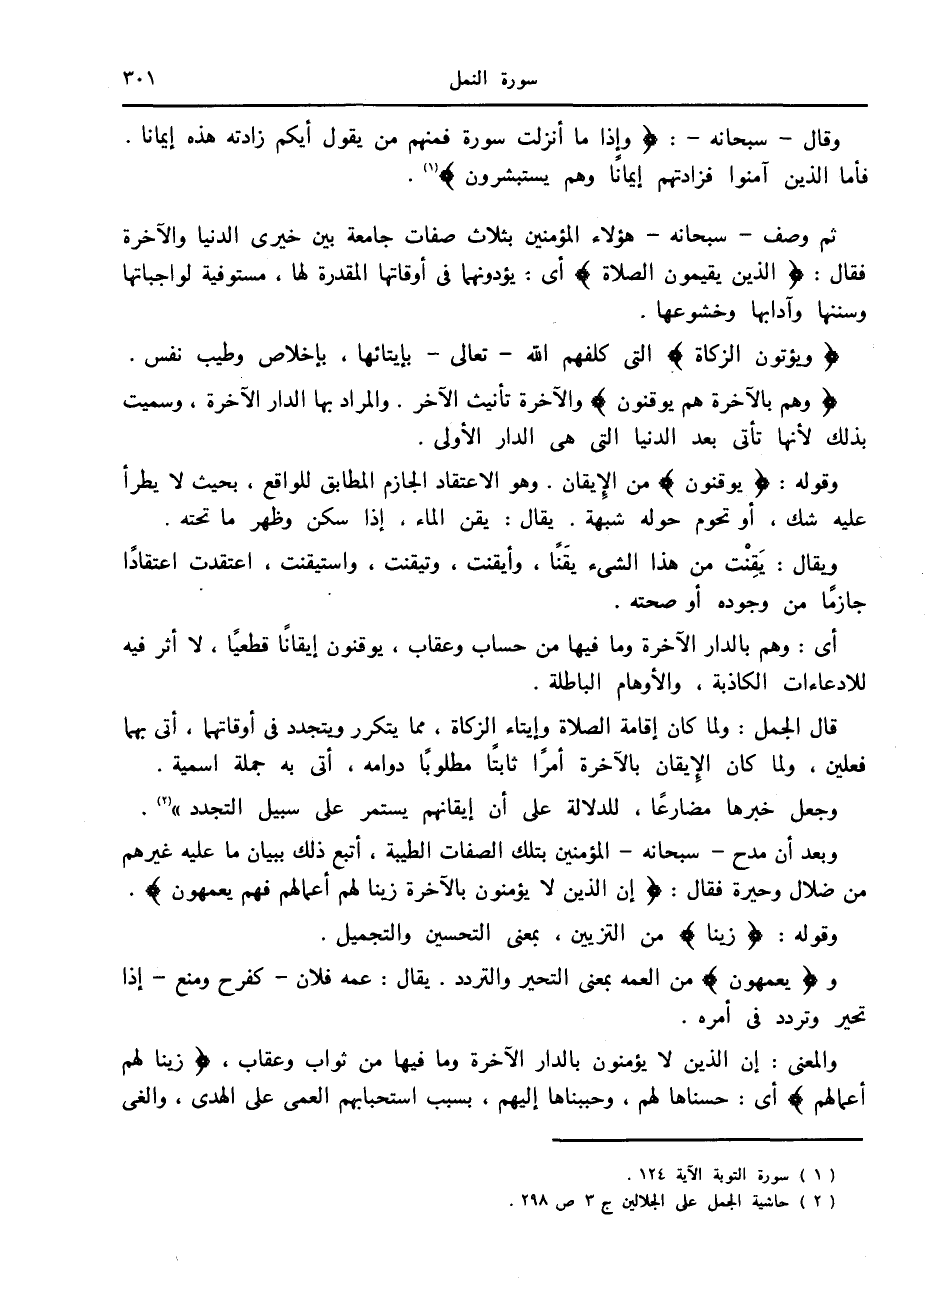 سورة النمل ٣٠١
وقال - سبحانه - : ﴿ وإذا ما أنزلت سورة فمنهم من يقول أيكم زادته هذه إيمانا .
فأما الذين آمنوا فزادتهم إيمانًا وهم يستبشرون ﴾(١) .
ثم وصف - سبحانه - هؤلاء المؤمنين بثلاث صفات جامعة بين خيرى الدنيا والآخرة
فقال : ﴿ الذين يقيمون الصلاة ﴾ أى : يؤدونها فى أوقاتها المقدرة لها ، مستوفية لواجباتها
وسننها وآدابها وخشوعها .
﴿ ويؤتون الزكاة ﴾ التى كلفهم الله - تعالى - بإيتائها ، بإخلاص وطيب نفس .
﴿ وهم بالآخرة هم يوقنون ﴾ والآخرة تأنيث الآخر . والمراد بها الدار الآخرة ، وسميت
بذلك لأنها تأتى بعد الدنيا التى هى الدار الأولى .
وقوله : ﴿ يوقنون ﴾ من الإيقان . وهو الاعتقاد الجازم المطابق للواقع ، بحيث لا يطرأ
عليه شك ، أو تحوم حوله شبهة . يقال : يقن الماء ، إذا سكن وظهر ما تحته .
ويقال : يَقِنْت من هذا الشىء يقَنًا ، وأيقنت ، وتيقنت ، واستيقنت ، اعتقدت اعتقادًا
جازمًا من وجوده أو صحته .
أى : وهم بالدار الآخرة وما فيها من حساب وعقاب ، يوقنون إيقانًا قطعيًا ، لا أثر فيه
للادعاءات الكاذبة ، والأوهام الباطلة .
قال الجمل : ولما كان إقامة الصلاة وإيتاء الزكاة ، مما يتكرر ويتجدد فى أوقاتها ، أتى بهما
فعلين ، ولما كان الإيقان بالآخرة أمرًا ثابتًا مطلوبًا دوامه ، أتى به جملة اسمية .
وجعل خبرها مضارعًا ، للدلالة على أن إيقانهم يستمر على سبيل التجدد »(٢) .
وبعد أن مدح - سبحانه - المؤمنين بتلك الصفات الطيبة ، أتبع ذلك ببيان ما عليه غيرهم
من ضلال وحيرة فقال : ﴿ إن الذين لا يؤمنون بالآخرة زينا لهم أعمالهم فهم يعمهون ﴾ .
وقوله : ﴿ زينا ﴾ من التزيين ، بمعنى التحسين والتجميل .
و ﴿ يعمهون ﴾ من العمه بمعنى التحير والتردد . يقال : عمه فلان - كفرح ومنع - إذا
تحير وتردد فى أمره .
والمعنى : إن الذين لا يؤمنون بالدار الآخرة وما فيها من ثواب وعقاب ، ﴿ زينا لهم
أعمالهم ﴾ أى : حسناها لهم ، وحببناها إليهم ، بسبب استحبابهم العمى على الهدى ، والغى
( ١ ) سورة التوبة الآية ١٢٤ .
( ٢ ) حاشية الجمل على الجلالين ج ٣ ص ٢٩٨ .